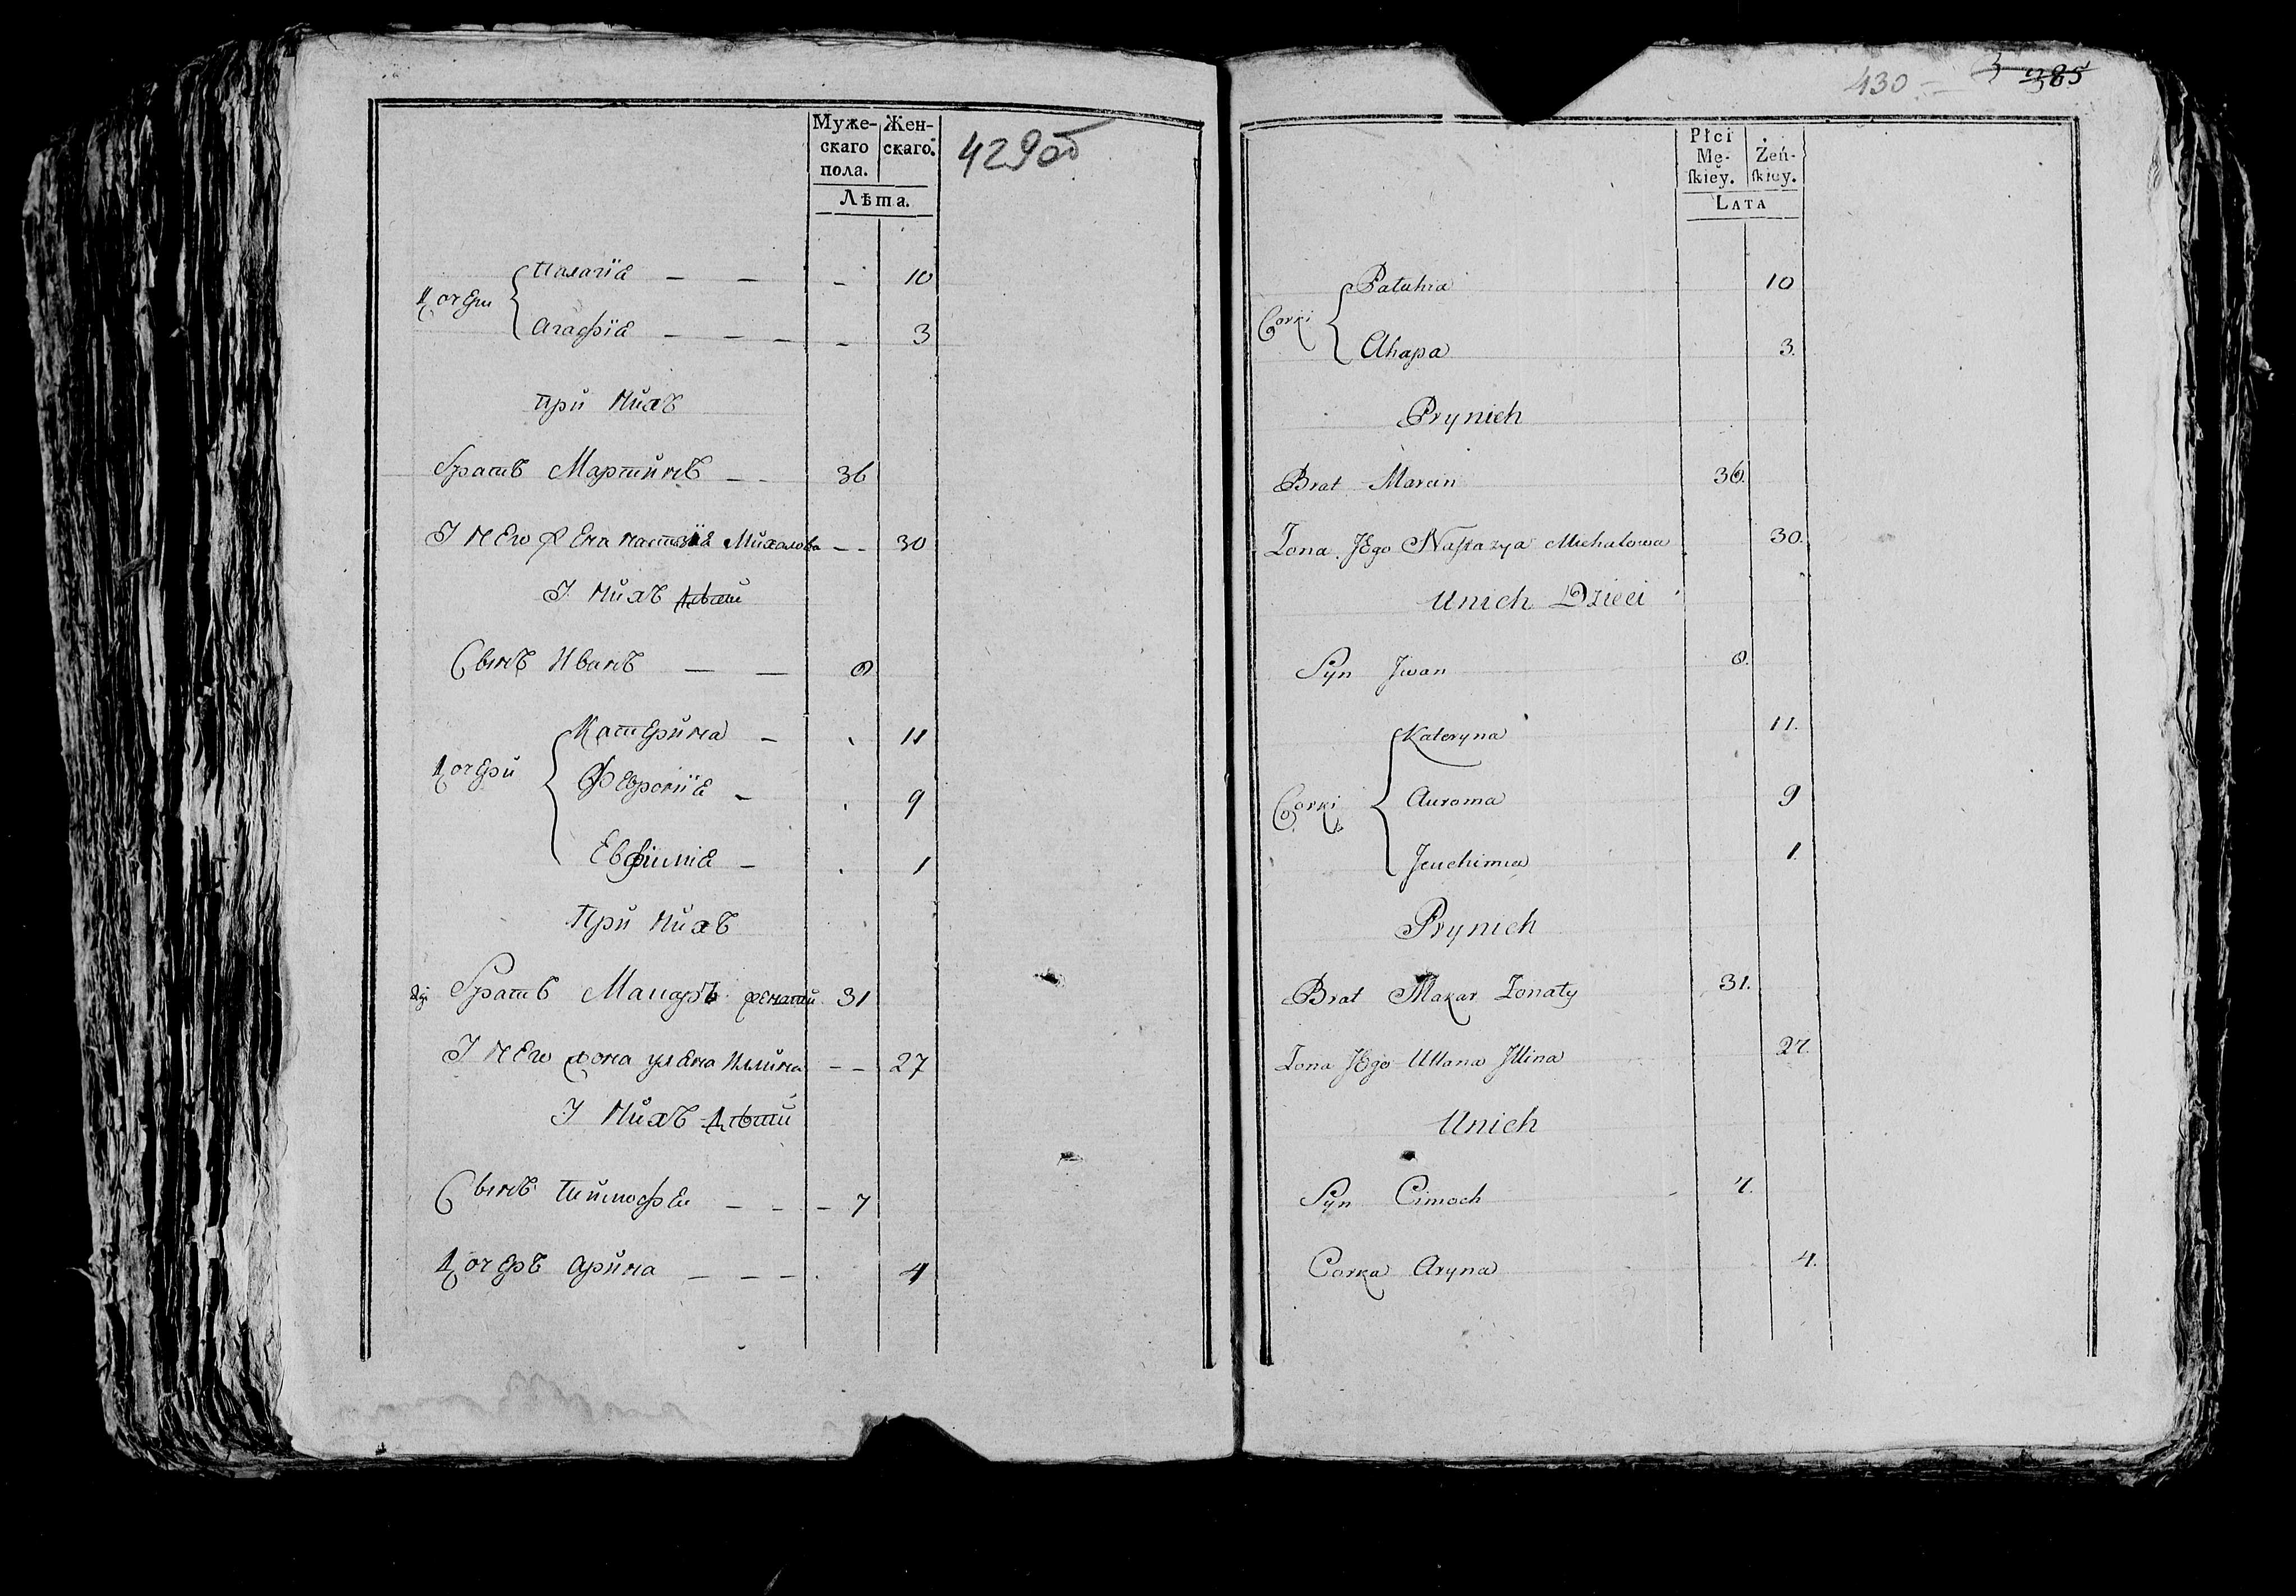 Муже- Жен-
скаго скаго.
пола.
Лѣта.
429об
Дочери
Палагіа — — - 10
Агафіа — — — - 3
При нихъ
братъ Мартинъ — - 36
У него жена настазіа Михалова - - 30
У нихъ дѣти
Сынъ Иванъ — — 0
Дочери
Катерина — 11
Февроніа — 9
Евфіиміа — 1
При нихъ
братъ Макаръ женатй 31
У него жона уляна Иллина - - 27
У нихъ дѣтй
Сынъ Тимофеи — - - - 7
Дочеръ Арина — — — 4
430 385
Płci
Mę- Żeń-
ſkiey. ſkiey.
LATA
Corki
Pałahia 10
Ahapa 3.
Prynich
Brat Marcin 36.
Zona JEgo Naſtazya Michałowa 30.
Unich Dzieci
Syn Jwan 0.
Corki
Kateryna 11.
Auroma 9
Jeuchimia 1.
Prynich
Brat Makar Zonaty 31.
Zona JEgo Ullana Jllina 27.
Unich
Syn Cimoch 7.
Corka Aryna 4.